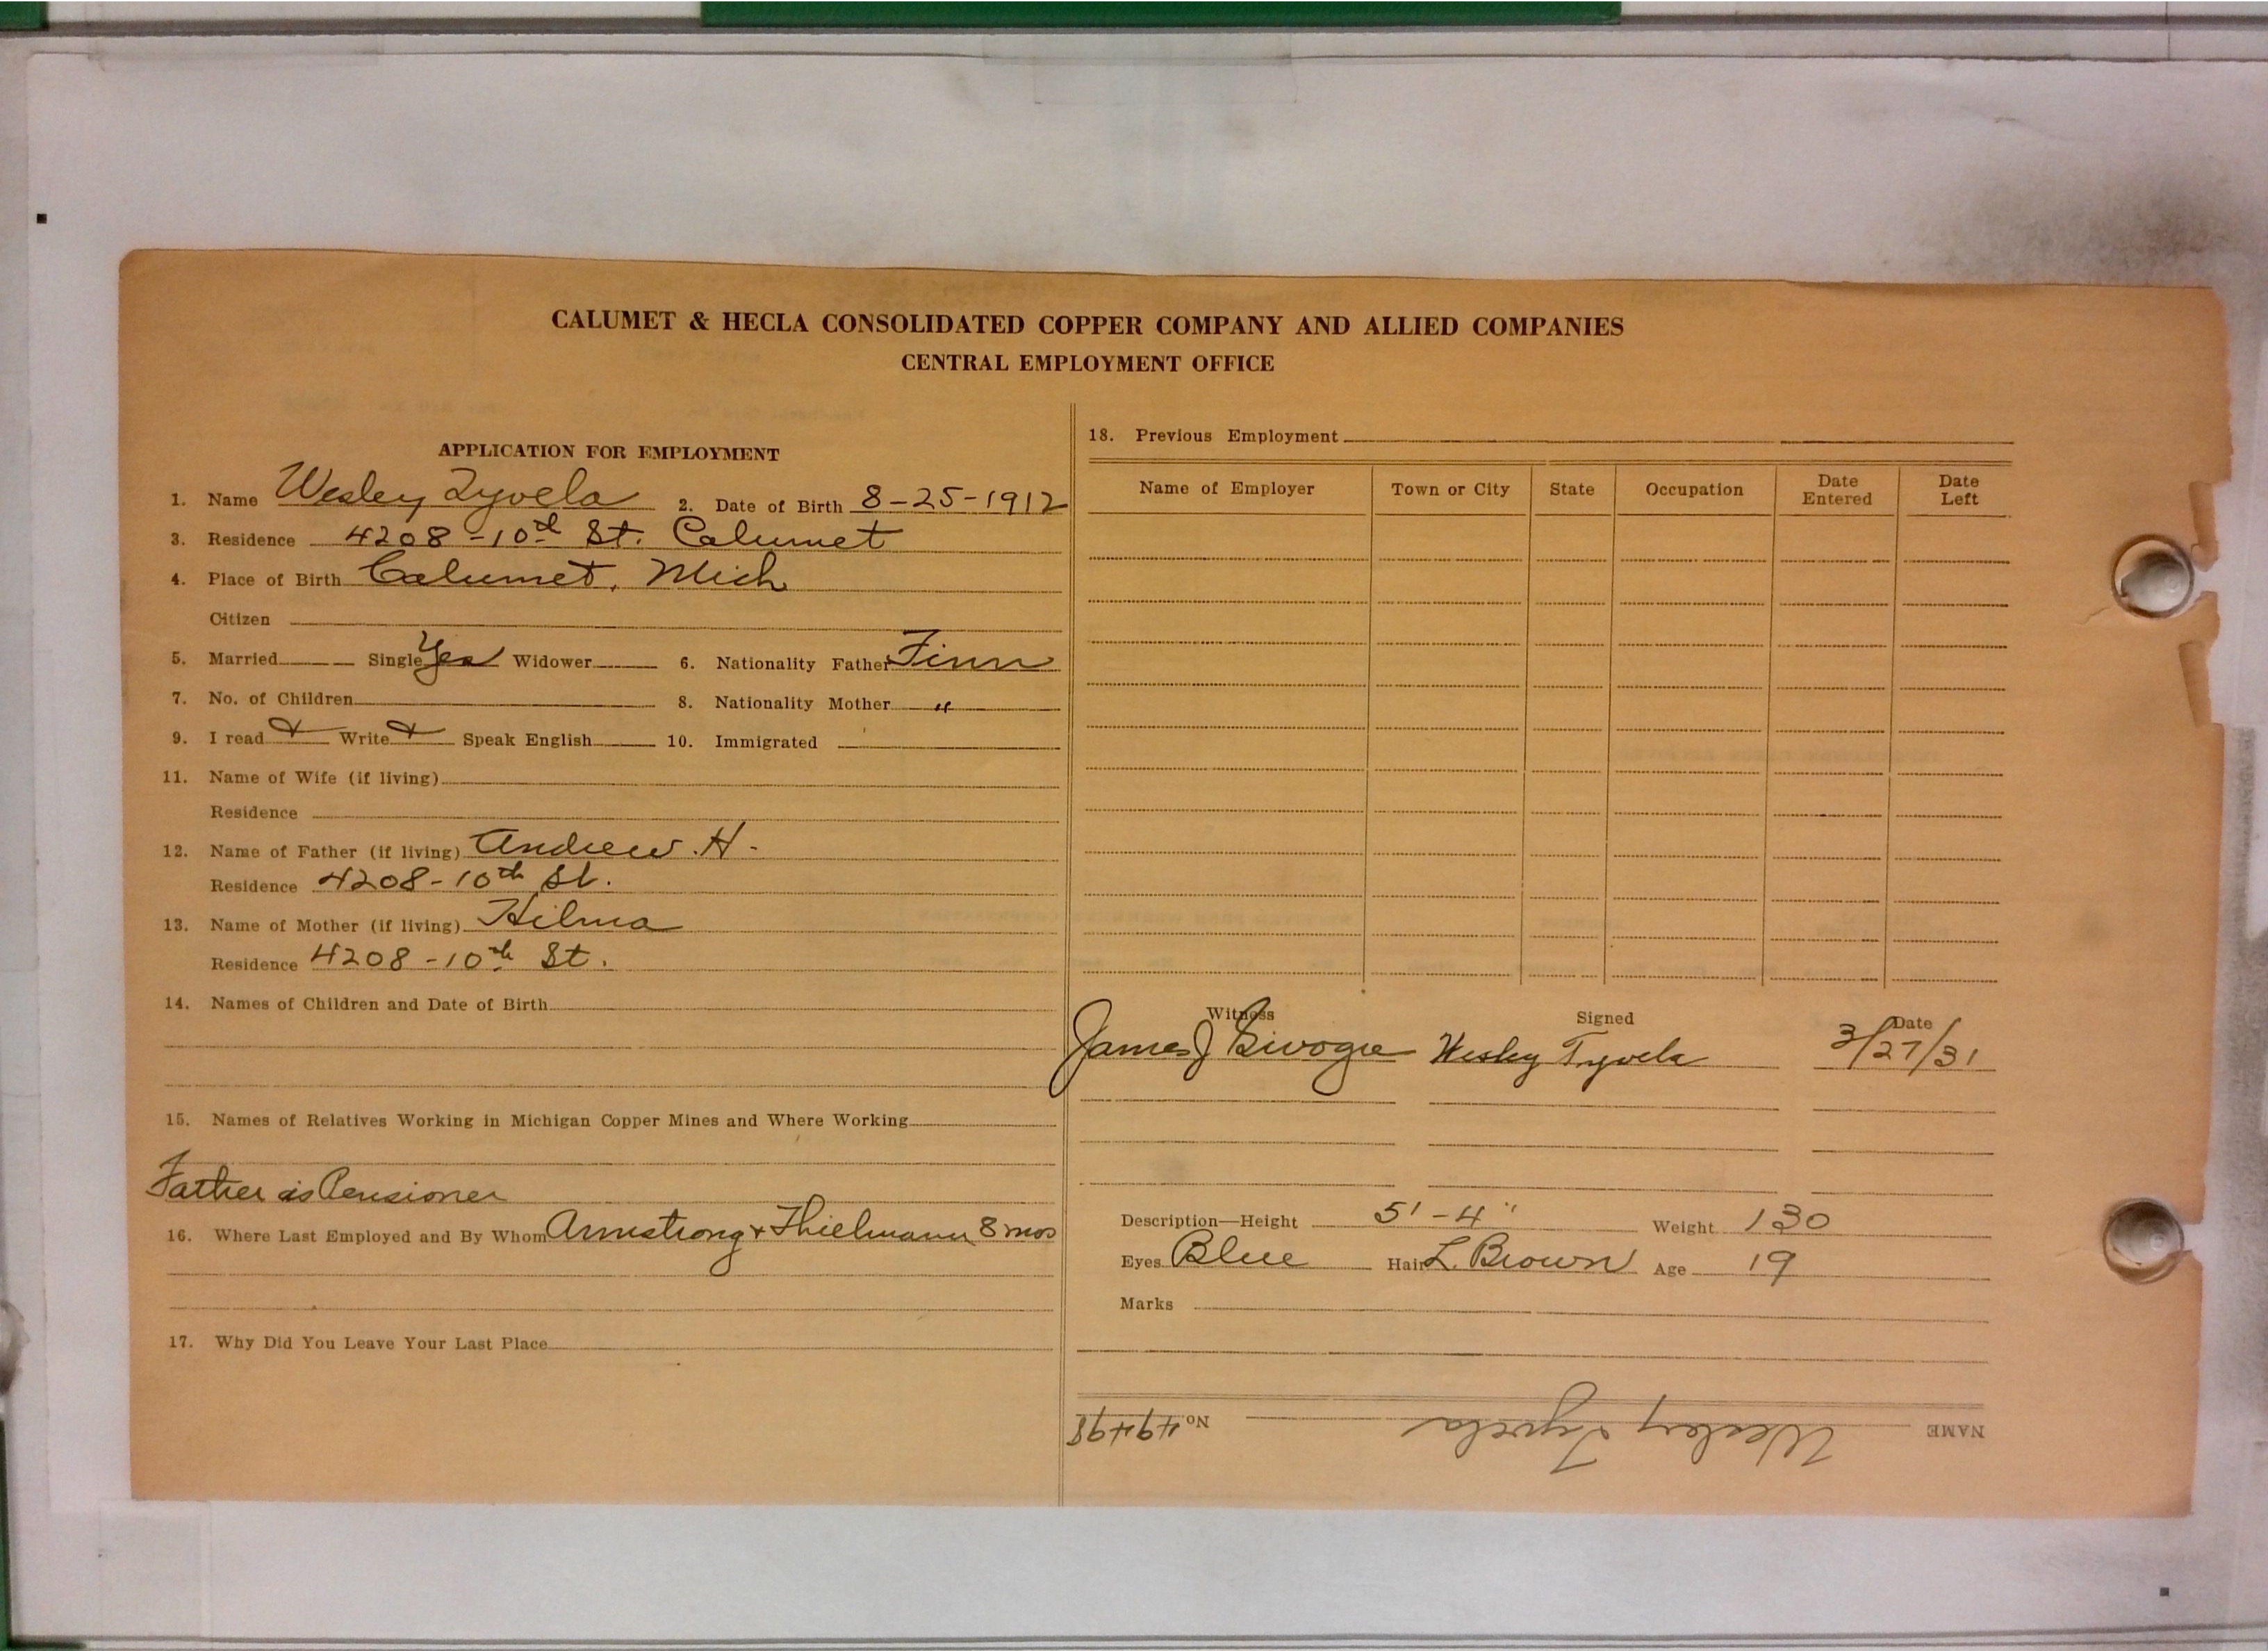 CALUMET & HECLA CONSOLIDATED COPPER COMPANY AND ALLIED COMPANIES
CENTRAL EMPLOYMENT OFFICE
APPLICATION FOR EMPLOYMENT
1. Name Wesley Tyvela 2. Date of Birth 8-25-1912
3. Residence 4208-10th St. Calumet
4. Place of Birth Calumet, Mich
Citizen
5. Married Single Yes Widower 6. Nationality Father Finn
7. No. of Children 8. Nationality Mother "
9. I read Write Speak English 10. Immigrated
11. Name of Wife (if living)
Residence
12. Name of Father (if living) Andrew H.
Residence 4208-10th St.
13. Name of Mother (if living) Hilma
Residence 4208-10th St.
14. Names of Children and Date of Birth
15. Names of Relatives Working in Michigan Copper Mines and Where Working
Father is Pensioner
16. Where Last Employed and By Whom Armstrong & Thielmann 8 mos
17. Why Did You Leave Your Last Place
18. Previous Employment
Name of Employer Town or City State Occupation Date Entered Date Left
Witness Signed Date
James J Wesley Tyvela 3/27/31
Description—Height 5'-4" Weight 130
Eyes Blue Hair L. Brown Age 19
Marks
NAME Wesley Tyvela No 49498